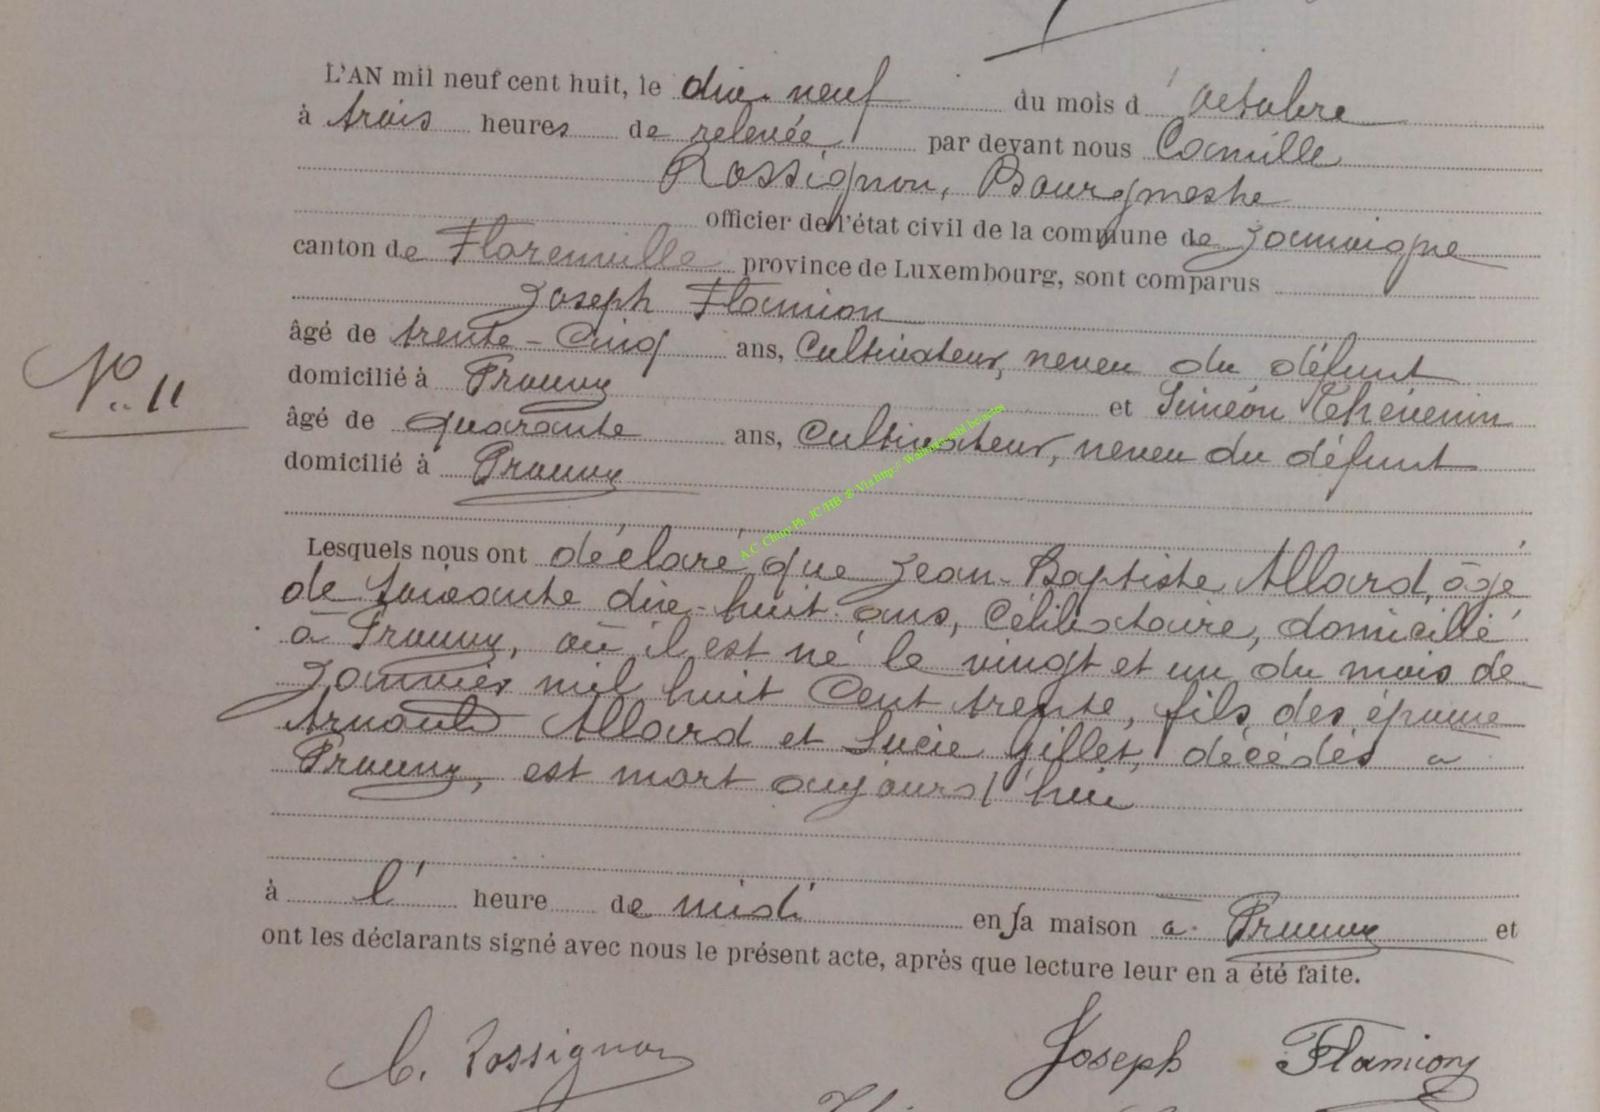 L'AN mil neuf cent huit, le dix-neuf du mois d'octobre
à trois heures de relevée par devant nous Camille
Rossignon, Bourgmestre
officier de l'état civil de la commune de Jamoigne
canton de Florenville province de Luxembourg, sont comparus
Joseph Flamion
âgé de trente-cinq ans, cultivateur, neveu du défunt
domicilié à Prouvy et Siméon Thévenin
N° 11
âgé de quarante ans, cultivateur, neveu du défunt
domicilié à Prouvy
Lesquels nous ont déclaré que Jean-Baptiste Allard, âgé
de soixante dix-huit ans, célibataire, domicilié
à Prouvy, où il est né le vingt et un du mois de
Janvier mil huit cent trente, fils des époux
Arnould Allard et Lucie Gillet, décédés à
Prouvy, est mort aujourd'hui
à l' heure de midi en sa maison à Prouvy et
ont les déclarants signé avec nous le présent acte, après que lecture leur en a été faite.
C. Rossignon Joseph Flamion